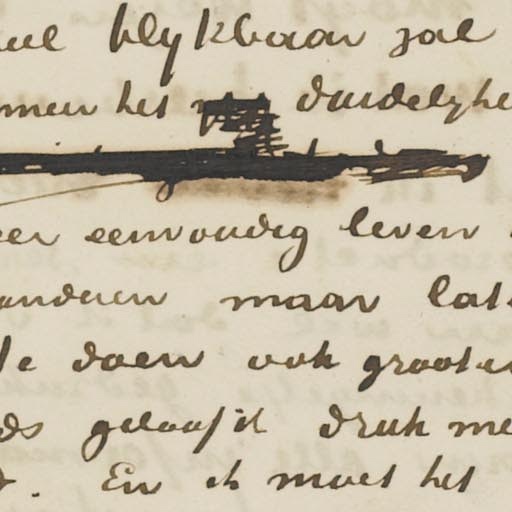 blykbaar zal
men het duidelyhe
eer eenvoudig leven
anderen maar lat
te doen ook grooten
ds geloof ik druk me
En ik moet het